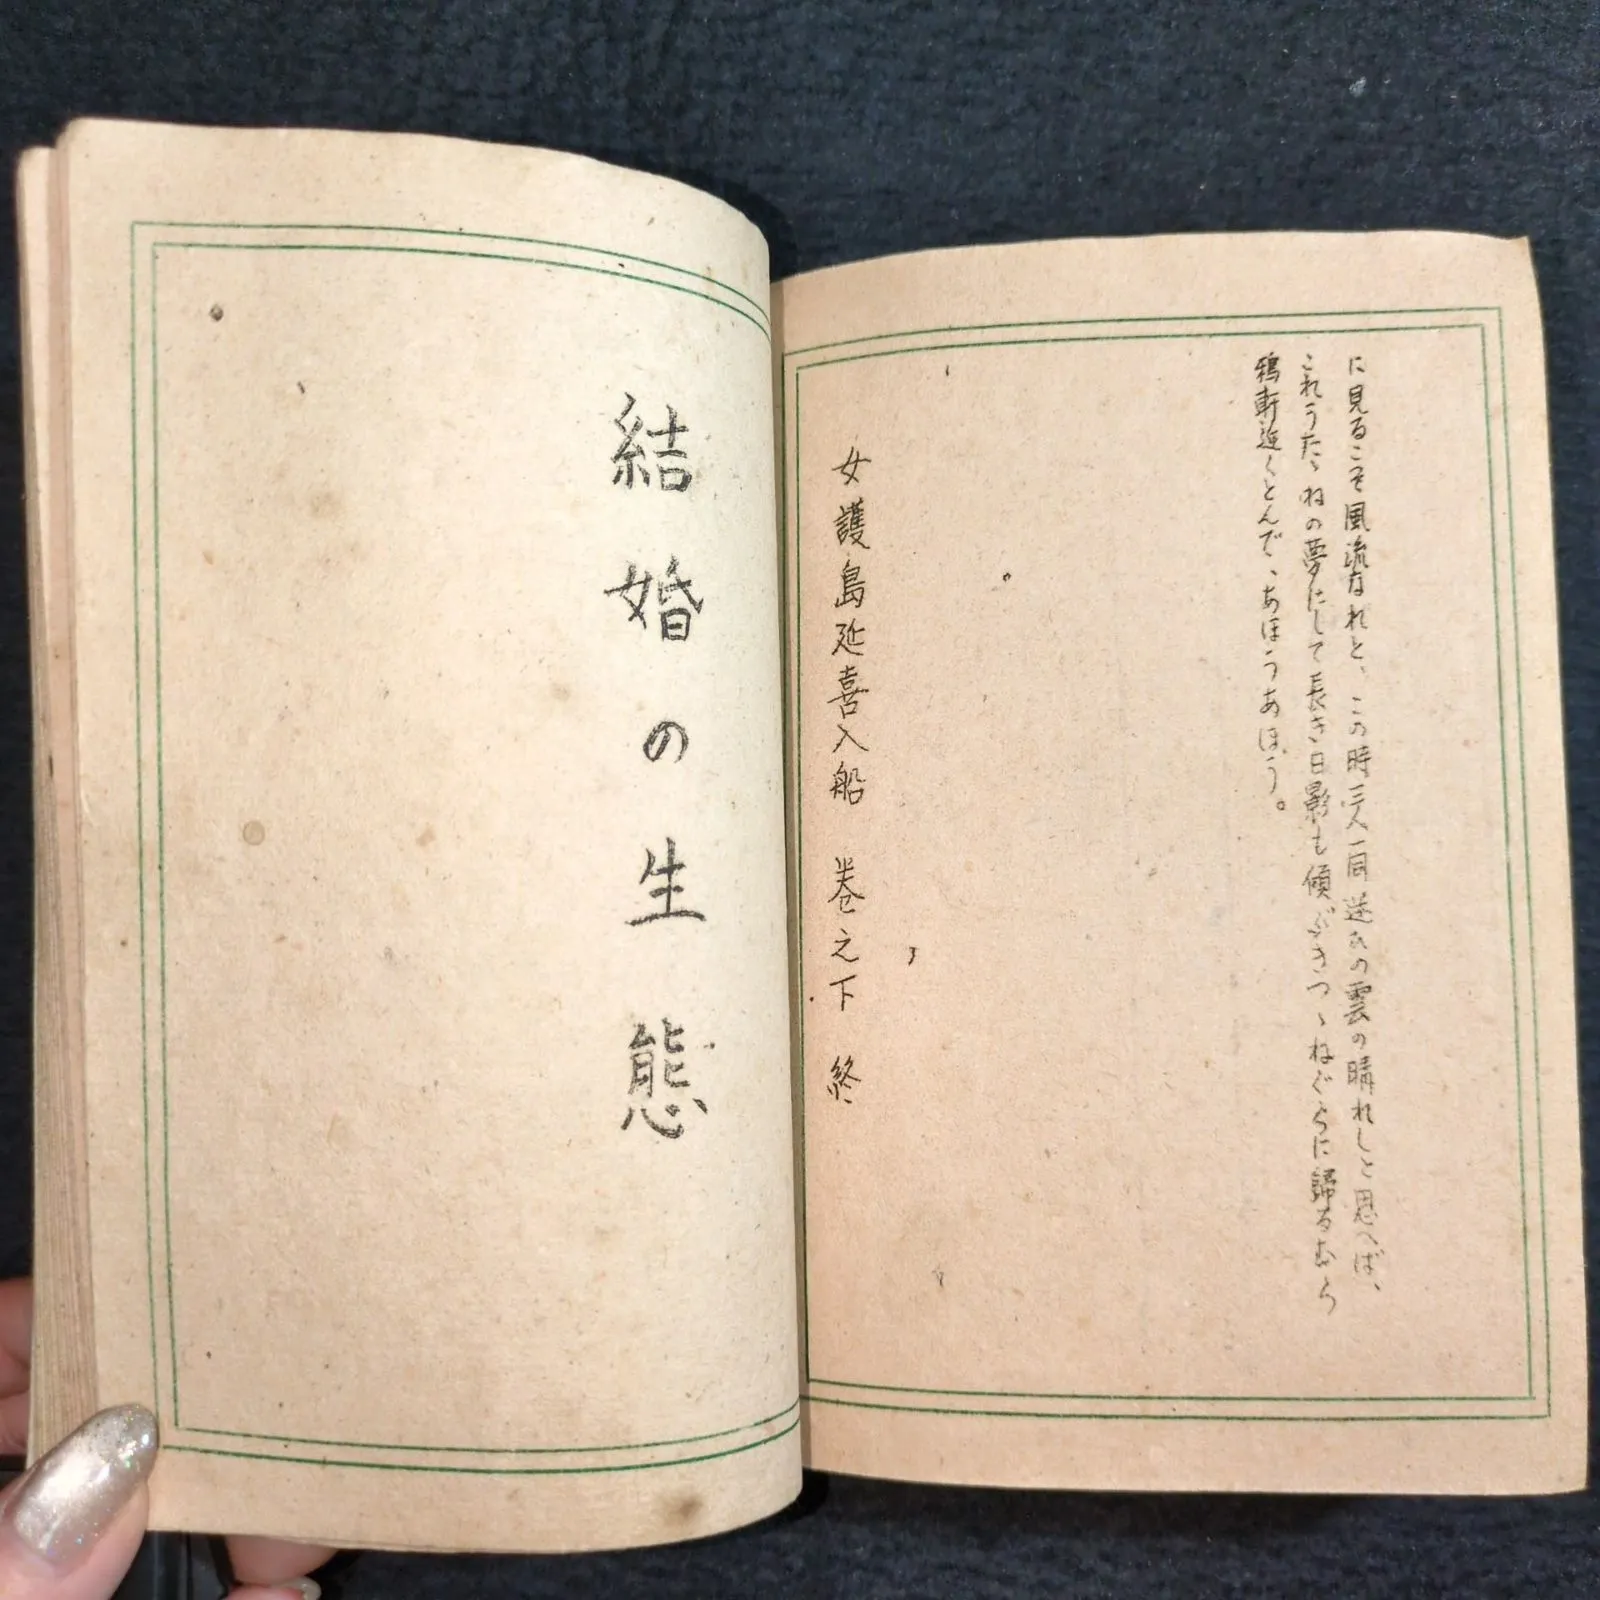 に見るこそ風流なれと、この時三人一同迷ひの雲の晴れしと思へば、
これうたゝねの夢にして長き日影も傾ぶきつゝねぐらに歸るむら
鴉軒近くとんで、あほうあほう。
女護島延喜入船 巻之下 終
結婚の生態